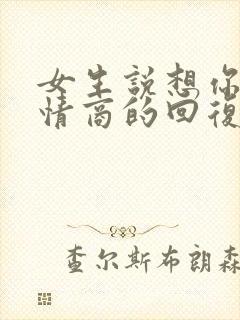 女生說想你
情商的回復
查尔斯布朗森